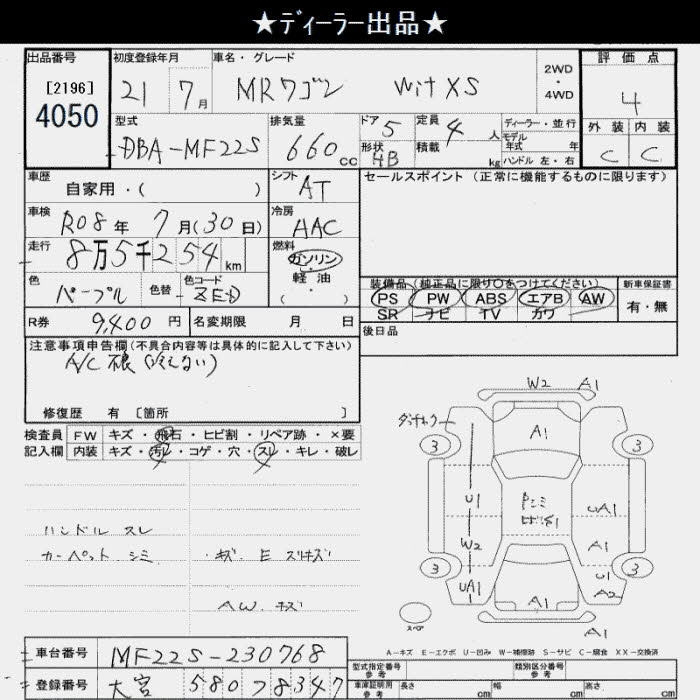 ★ディーラー出品★
出品番号 初度登録年月 車名・グレード 評価点
[2196]
4050
21 7月 MRワゴン WitXS 2WD・4WD 4
外装 内装
C C
型式 排気量 ドア 定員 ディーラー・並行
DBA-MF22S 660cc 5 4人 モデル年式 年
形状 積載
HB kg ハンドル 左・右
車歴 シフト セールスポイント(正常に機能するものに限ります)
自家用・( ) AT
車検 冷房
R08年 7月(30日) AAC
走行 燃料
8万5千254km ガソリン・軽油・( )
色 色替 色コード 装備品(純正品に限り○をつけてください) 新車保証書
パープル ZED PS PW ABS エアB AW 有・無
SR ナビ TV カワ
R券 9,400円 名変期限 月 日 後日品
注意事項申告欄(不具合内容等は具体的に記入して下さい)
修復歴 有 [箇所 ]
検査員 FW キズ・飛石・ヒビ割・リペア跡・×要
記入欄 内装 キズ・汚レ・コゲ・穴・スレ・キレ・破レ
ハンドル スレ
カーペット シミ キズ E スリキズ
AW キズ
W2 A1
A1
3 3
U1 UA1
W2 A1
3 3
UA1 U1
A2
A1
A1
スペア
A-キズ E-エクボ U-凹み W-補修跡 S-サビ C-腐食 XX-交換済
車台番号 MF22S-230768
型式指定番号 参考 類別区分番号 参考
登録番号 大宮 580 7 8347
車庫証明用 参考 長さ cm 幅 cm 高さ cm